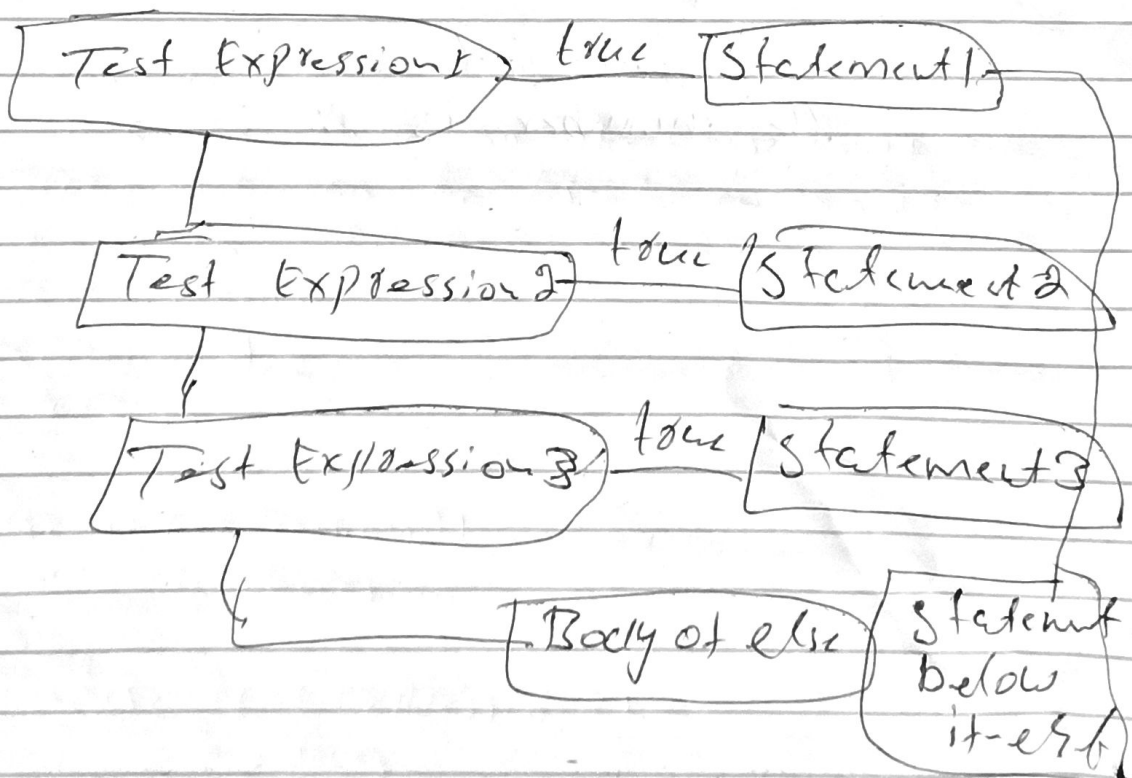 Test Expression1 true Statement1
Test Expression2 true Statement2
Test Expression3 true Statement3
Body of else Statemnt
below